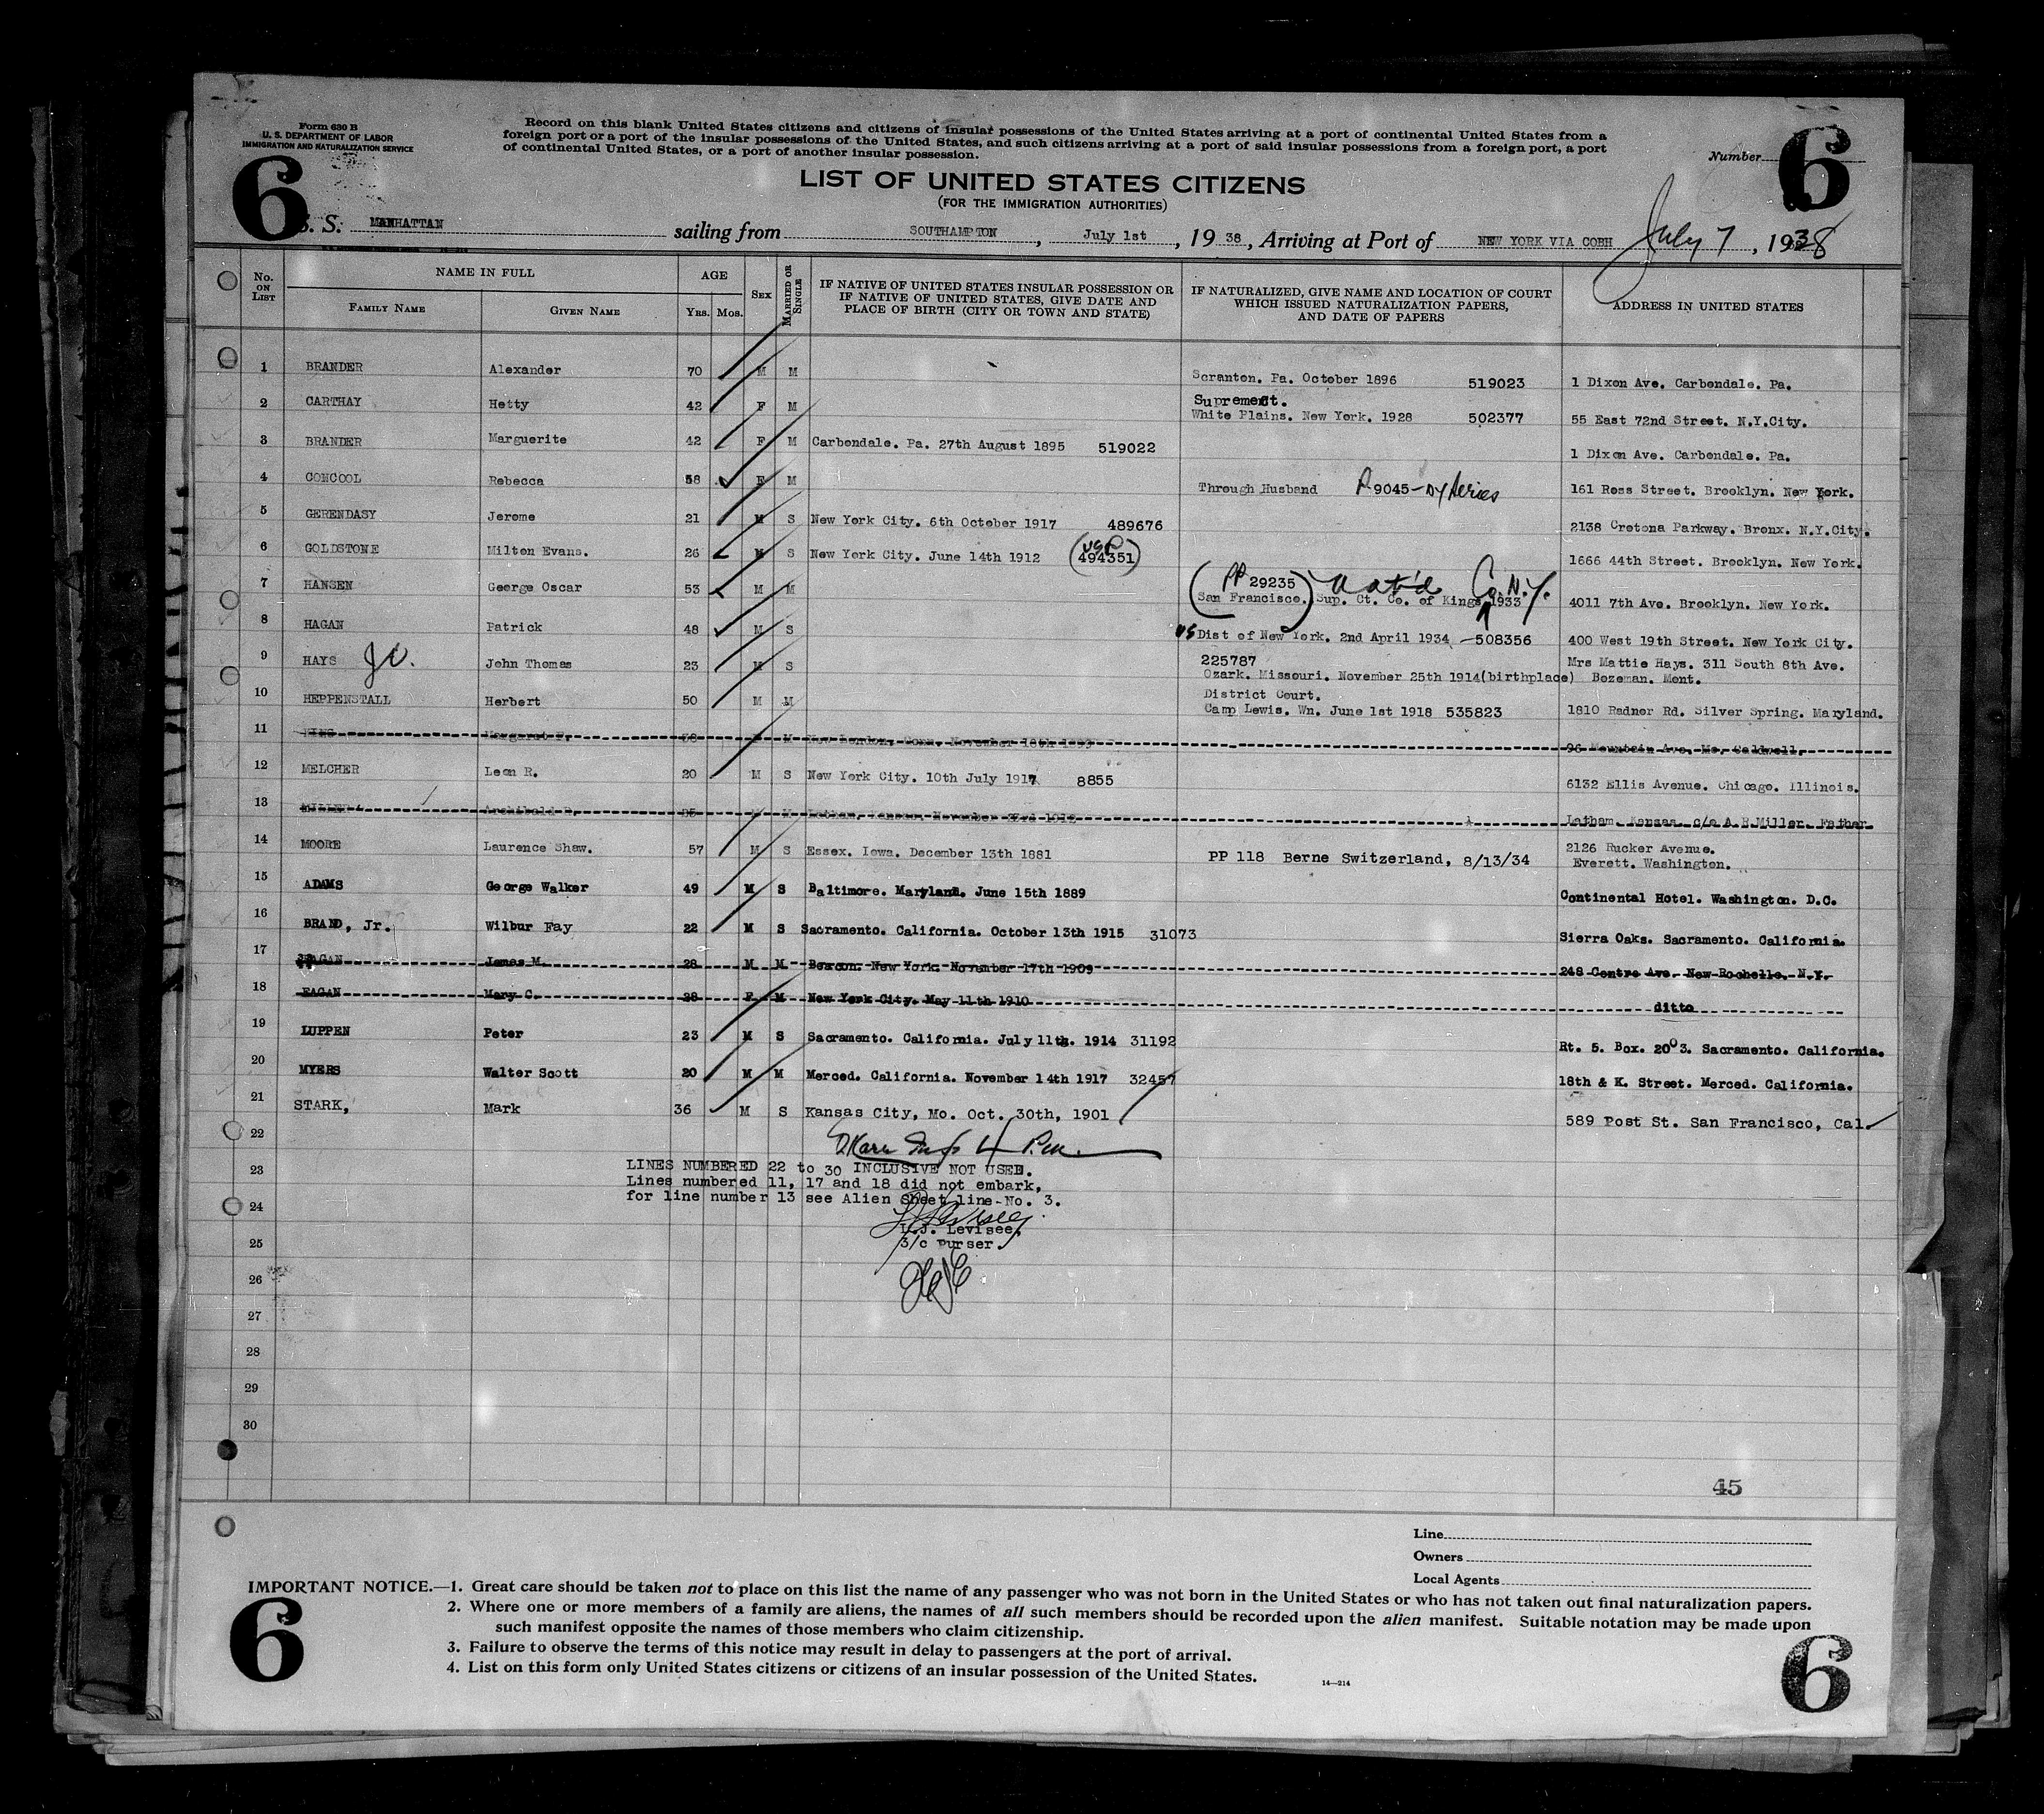 Form 630 B
U. S. DEPARTMENT OF LABOR
IMMIGRATION AND NATURALIZATION SERVICE
Record on this blank United States citizens and citizens of insular possessions of the United States arriving at a port of continental United States from a
foreign port or a port of the insular possessions of the United States, and such citizens arriving at a port of said insular possessions from a foreign port, a port
of continental United States, or a port of another insular possession.
Number 6
6
LIST OF UNITED STATES CITIZENS
(FOR THE IMMIGRATION AUTHORITIES)
S. S. MANHATTAN sailing from SOUTHAMPTON, July 1st, 1938, Arriving at Port of NEW YORK VIA COBH July 7, 1938
No. ON LIST NAME IN FULL FAMILY NAME GIVEN NAME AGE YRS. MOS. SEX MARRIED OR SINGLE IF NATIVE OF UNITED STATES INSULAR POSSESSION OR IF NATIVE OF UNITED STATES, GIVE DATE AND PLACE OF BIRTH (CITY OR TOWN AND STATE) IF NATURALIZED, GIVE NAME AND LOCATION OF COURT WHICH ISSUED NATURALIZATION PAPERS, AND DATE OF PAPERS ADDRESS IN UNITED STATES
1 BRANDER Alexander 70 M M Scranton. Pa. October 1896 519023 1 Dixon Ave. Carbondale. Pa.
2 CARTHAY Hetty 42 F M Supremect. White Plains. New York. 1928 502377 55 East 72nd Street. N.Y.City.
3 BRANDER Marguerite 42 F M Carbondale. Pa. 27th August 1895 519022 1 Dixon Ave. Carbondale. Pa.
4 CONCOOL Rebecca 58 F M Through Husband P 9045-Dy Series 161 Ross Street. Brooklyn. New York.
5 GERENDASY Jerome 21 M S New York City. 6th October 1917 489676 2138 Cretona Parkway. Bronx. N.Y.City.
6 GOLDSTONE Milton Evans. 26 M S New York City. June 14th 1912 (494351) 1666 44th Street. Brooklyn. New York.
7 HANSEN George Oscar 53 M M (PP 29235 San Francisco.) Nat'd Sup. Ct. Co. of Kings 1933 Co. N.Y. 4011 7th Ave. Brooklyn. New York.
8 HAGAN Patrick 48 M S US Dist of New York. 2nd April 1934 -508356 400 West 19th Street. New York City.
9 HAYS John Thomas 23 M S 225787 Ozark. Missouri. November 25th 1914(birthplace) Mrs Mattie Hays. 311 South 8th Ave. Bozeman. Mont.
10 HEPPENSTALL Herbert 50 M M District Court. Camp Lewis. Wn. June 1st 1918 535823 1810 Radner Rd. Silver Spring. Maryland.
11 KING Margaret F. M New London. Conn. November 18th 96 Mountain Ave. Caldwell.
12 MELCHER Leon R. 20 M S New York City. 10th July 1917 8855 6132 Ellis Avenue. Chicago. Illinois.
13 MILLER Archibald M Latham. Kansas. November 1912 Latham. Kansas. c/o A.R.Miller. Father
14 MOORE Laurence Shaw. 57 M S Essex. Iowa. December 13th 1881 PP 118 Berne Switzerland, 8/13/34 2126 Rucker Avenue. Everett. Washington.
15 ADAMS George Walker 49 M S Baltimore. Maryland. June 15th 1889 Continental Hotel. Washington. D.C.
16 BRAND, Jr. Wilbur Fay 22 M S Sacramento. California. October 13th 1915 31073 Sierra Oaks. Sacramento. California.
17 EAGAN James M. 28 M M Beacon. New York. November 17th 1909 248 Centre Ave. New Rochelle. N.Y.
18 EAGAN Mary C. 28 F M New York City. May 11th 1910 ditto
19 LUPPEN Peter 23 M S Sacramento. California. July 11th. 1914 31192 Rt. 5. Box. 2003. Sacramento. California.
20 MYERS Walter Scott 20 M M Merced. California. November 14th 1917 32457 18th & K. Street. Merced. California.
21 STARK, Mark 36 M S Kansas City, Mo. Oct. 30th, 1901 589 Post St. San Francisco, Cal.
22
23 LINES NUMBERED 22 to 30 INCLUSIVE NOT USED.
Lines numbered 11, 17 and 18 did not embark,
24 for line number 13 see Alien Sheet line-No. 3.
Levisee,
25 3/c Purser.
26
27
28
29
30
45
Line
Owners
Local Agents
IMPORTANT NOTICE.—1. Great care should be taken not to place on this list the name of any passenger who was not born in the United States or who has not taken out final naturalization papers.
2. Where one or more members of a family are aliens, the names of all such members should be recorded upon the alien manifest. Suitable notation may be made upon
such manifest opposite the names of those members who claim citizenship.
3. Failure to observe the terms of this notice may result in delay to passengers at the port of arrival.
4. List on this form only United States citizens or citizens of an insular possession of the United States.
14—214
6
6